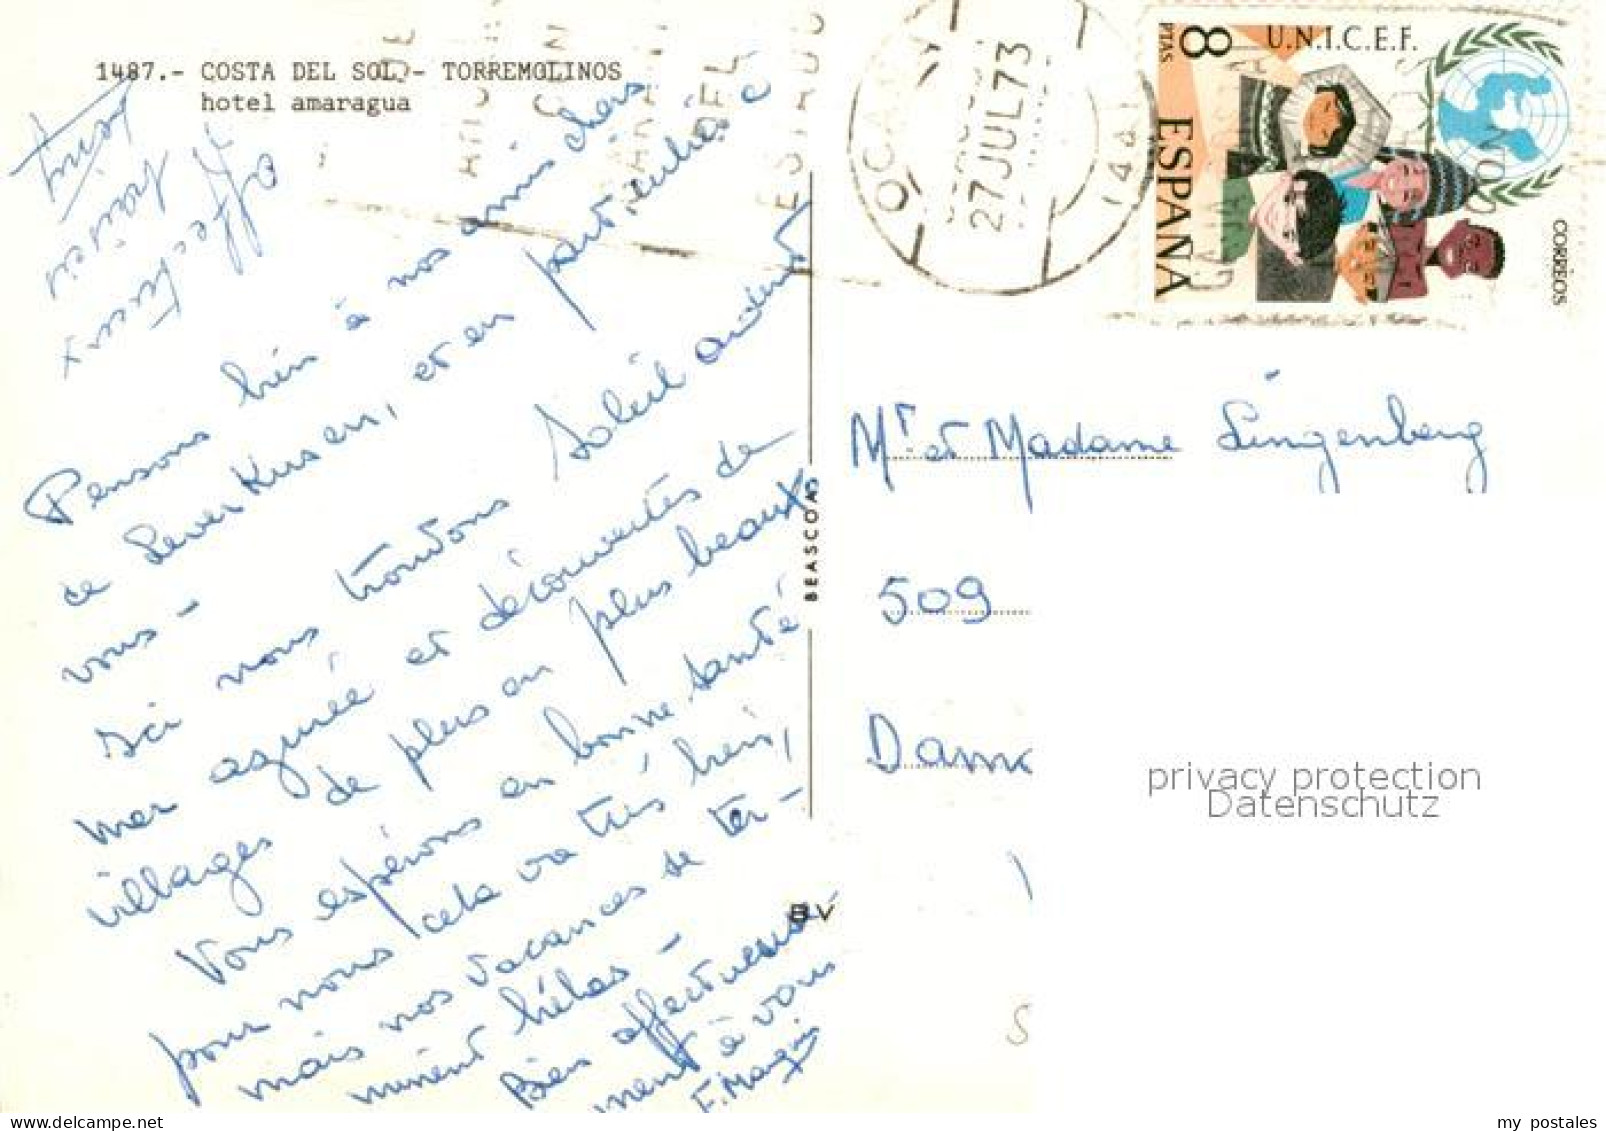 1487.- COSTA DEL SOL.- TORREMOLINOS
hotel amaragua
Pensons bien à nos amis chers
de LeverKusen, et en particulié à
vous -
Ici nous trouvons Soleil ardent
mer azurée et découvertes de
villages de plus en plus beaux
Vous espérons en bonne santé
pour nous cela va très bien,
mais nos vacances se ter-
minent hélas -
Bien affectueuse-
ment à vous
F. Mangin
affectueux
BEASCOA
BV
27 JUL 73
8
PTAS
U.N.I.C.E.F.
ESPAÑA
CORREOS
Mr et Madame Lingenberg
509
privacy protection
Datenschutz
my postales